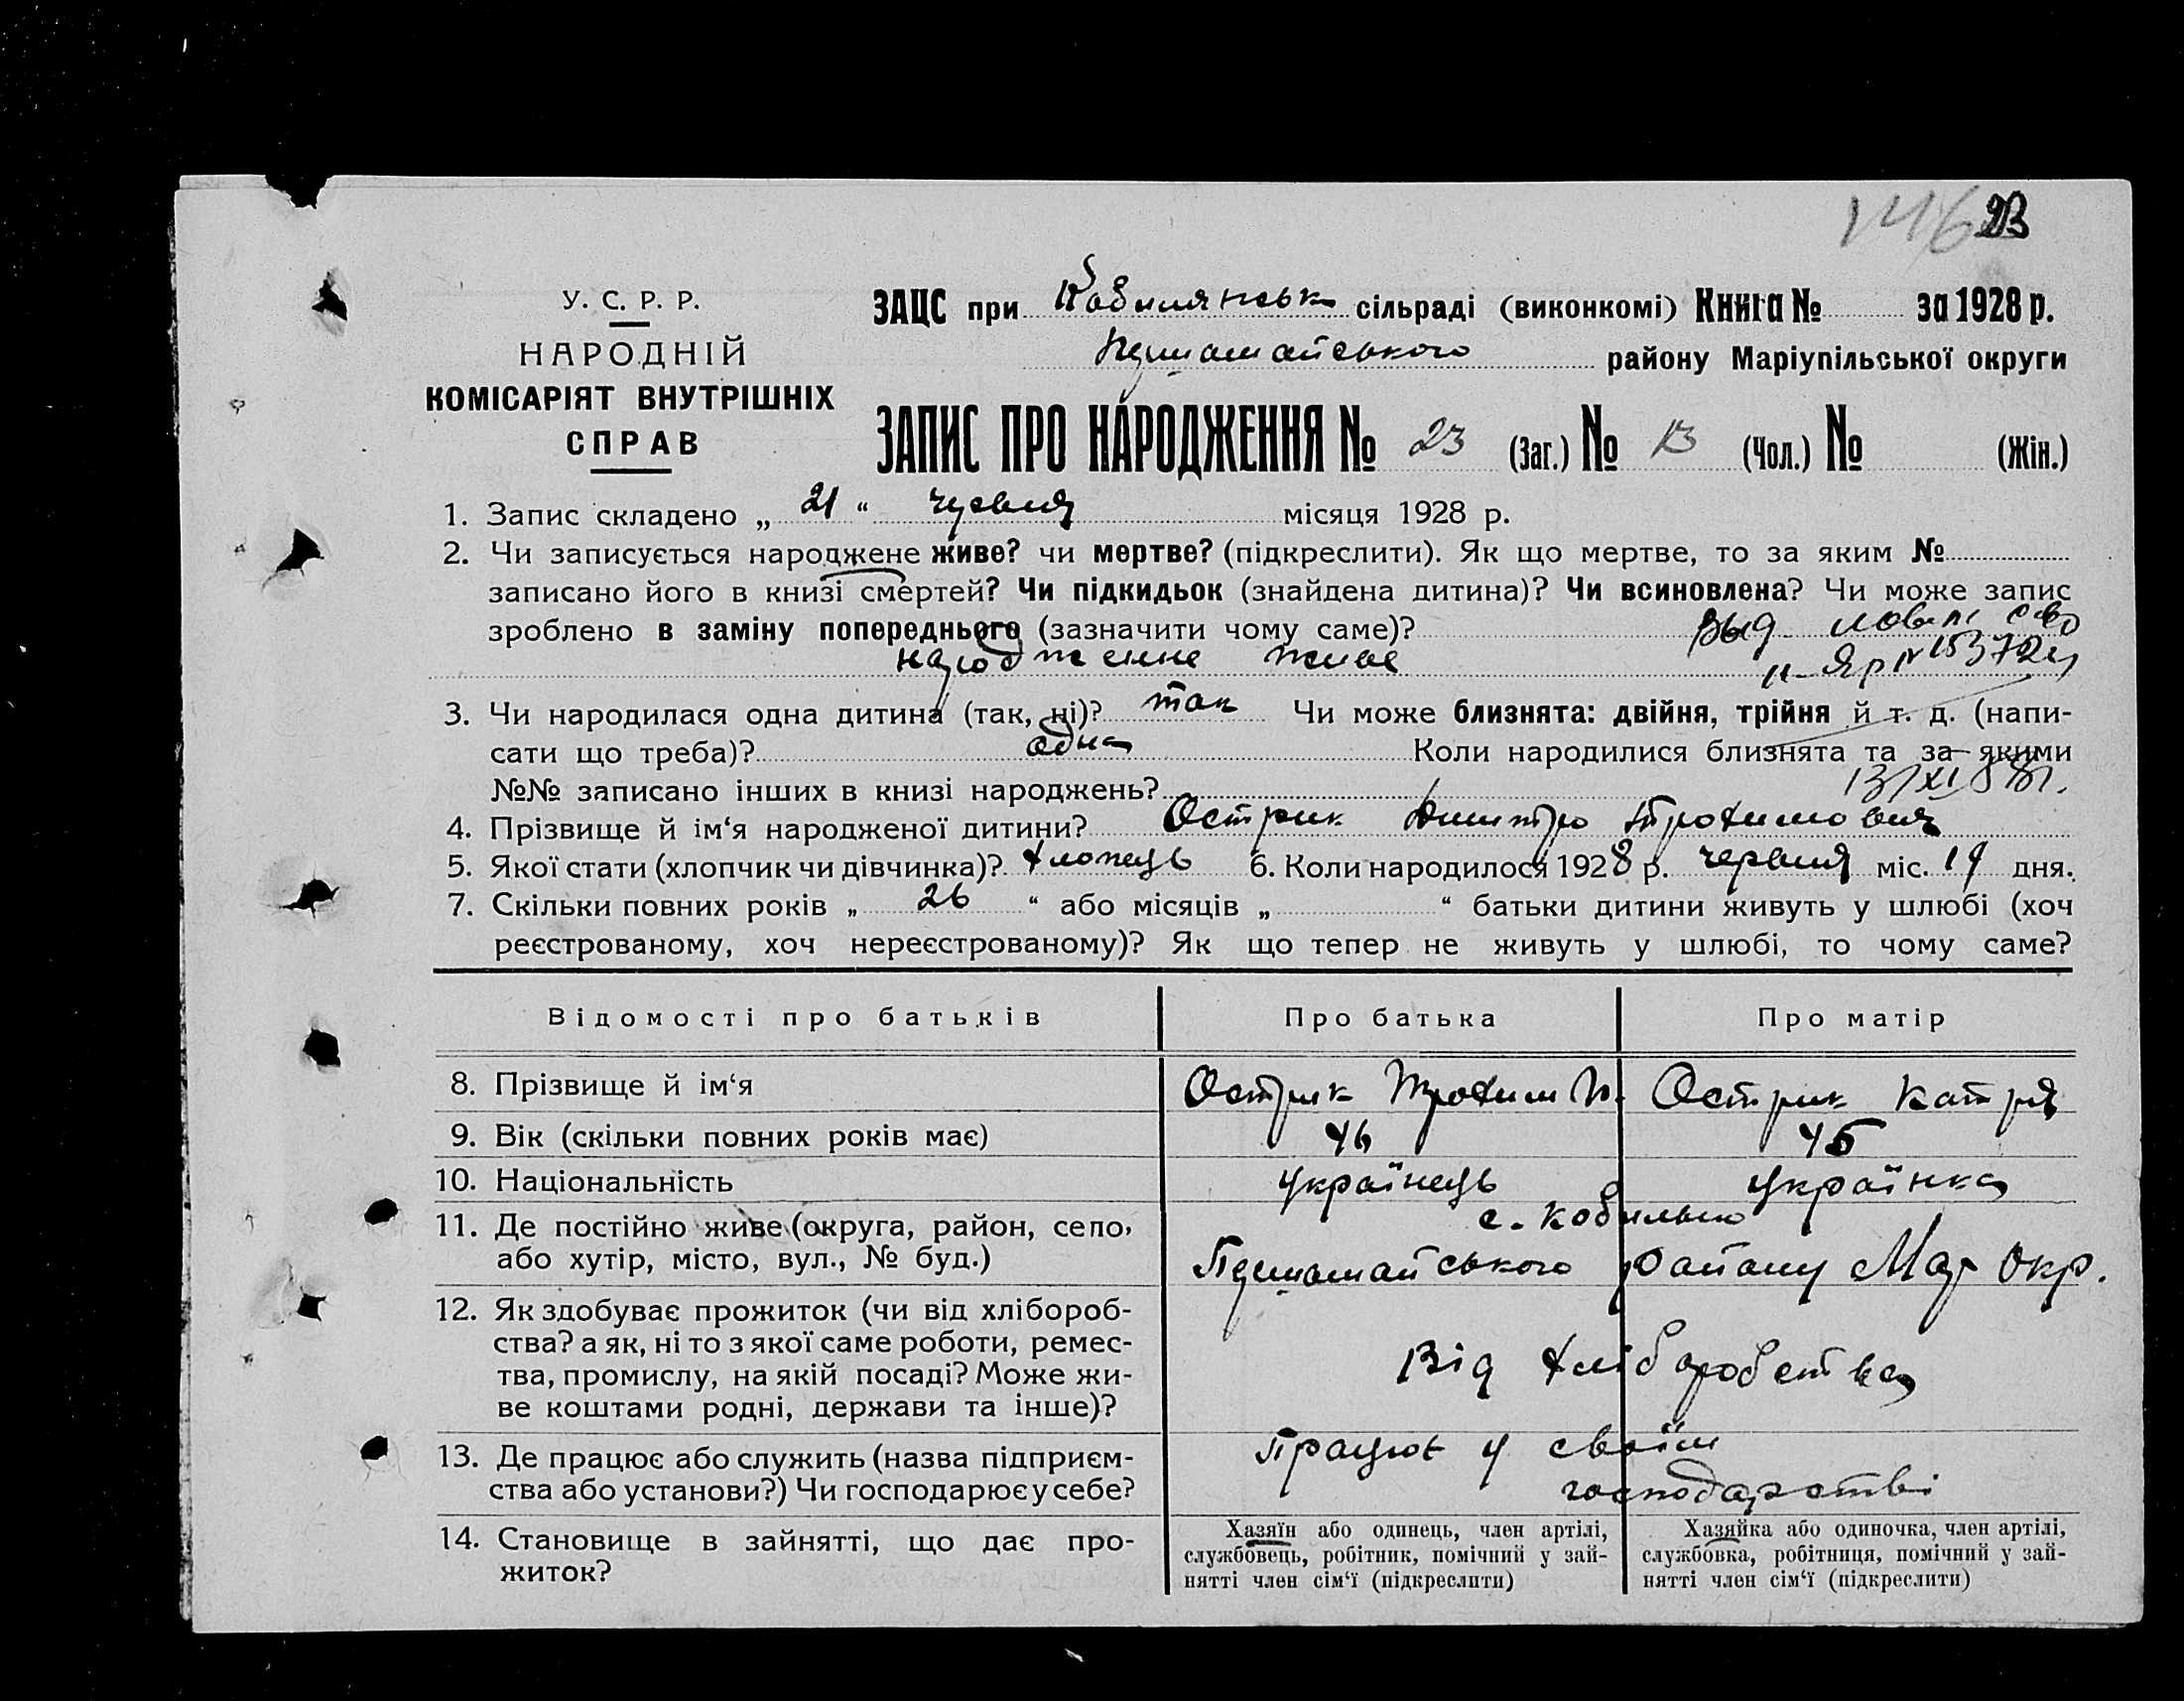 146 23
У. С. Р. Р.
НАРОДНІЙ
КОМІСАРІЯТ ВНУТРІШНІХ
СПРАВ
ЗАЦС при Кобилянськ сільраді (виконкомі) Книга № за 1928 р.
району Маріупільської округи
ЗАПИС ПРО НАРОДЖЕННЯ № 23 (Заг.) № 13 (Чол.) № (Жін.)
1. Запис складено „ 21 “ червня місяця 1928 р.
2. Чи записується народжене живе? чи мертве? (підкреслити). Як що мертве, то за яким №
записано його в книзі смертей? Чи підкидьок (знайдена дитина)? Чи всиновлена? Чи може запис
зроблено в заміну попереднього (зазначити чому саме)?
народженне живе
3. Чи народилася одна дитина (так, ні)? так Чи може близнята: двійня, трійня й т. д. (напи-
сати що треба)? одна Коли народилися близнята та за якими
№№ записано інших в книзі народжень?
4. Прізвище й ім‘я народженої дитини? Острик Дмитро Трохимович
5. Якої стати (хлопчик чи дівчинка)? хлопець 6. Коли народилося 1928 р. червня міс. 19 дня.
7. Скільки повних років „ 26 “ або місяців „ “ батьки дитини живуть у шлюбі (хоч
реєстрованому, хоч нереєстрованому)? Як що тепер не живуть у шлюбі, то чому саме?
Відомості про батьків Про батька Про матір
8. Прізвище й ім‘я Острик Трохим Острик Катря
9. Вік (скільки повних років має) 46 45
10. Національність українець українка
11. Де постійно живе (округа, район, село,
або хутір, місто, вул., № буд.)
с. Кобильно
району Мар Окр.
12. Як здобуває прожиток (чи від хлібороб-
ства? а як, ні то з якої саме роботи, ремес-
тва, промислу, на якій посаді? Може жи-
ве коштами родні, держави та інше)?
Від хліборобства
13. Де працює або служить (назва підприєм-
ства або установи?) Чи господарює у себе?
Працює у своїм
господарстві
14. Становище в зайнятті, що дає про-
житок?
Хазяїн або одинець, член артілі,
службовець, робітник, помічний у зай-
нятті член сім‘ї (підкреслити)
Хазяйка або одиночка, член артілі,
службовка, робітниця, помічний у зай-
нятті член сім‘ї (підкреслити)